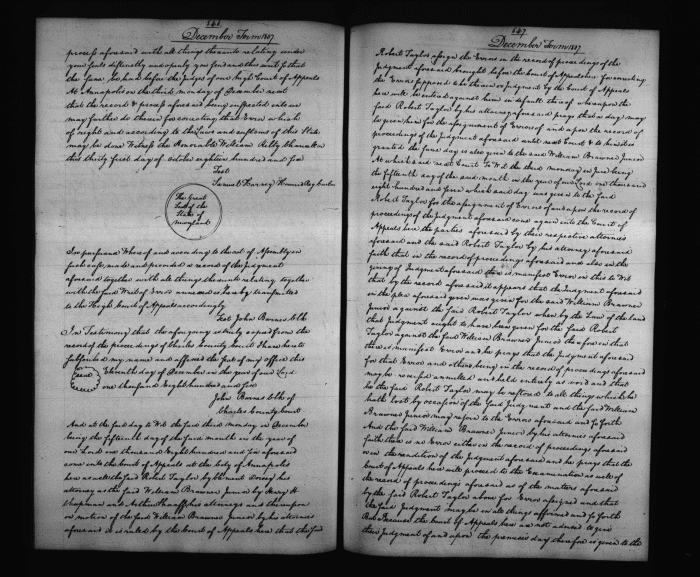 146
December Term 1807
process aforesaid with all things thereunto relating under
your seals distinctly and openly you send and this writ so that
the same be had before the Judges of our high Court of Appeals
At Annapolis on the third monday of December next
that the record & process aforesaid being inspected we
may further do therein for correcting that Error which
of right and according to the Laws and customs of this State
may be done Witness the Honorable William Kilty Chancellor
this thirty first day of october eighteen hundred and six
Test
Samuel Harvey Howard Reg
The Great
Seal of the
State of
Maryland
In pursuance Whereof and according to the act of Assembly in
such case made and provided a record of the Judgment
aforesaid together with all things thereunto relating together
with the said Writ of Error annexed is hereby transmitted
to the High Court of Appeals accordingly
Test John Barnes Clk
In Testimony that the aforegoing is truly copied from the
record of the proceedings of Charles County Court I have hereto
subscribed my name and affixed the seal of my office this
Seal Eleventh day of December in the year of our Lord
one thousand Eight hundred and six
John Barnes Clk of
Charles County Court
And at the said day to Wit the said third monday in December
being the fifteenth day of the said month in the year of
our Lord one thousand Eight hundred and six aforesaid
came into the Court of Appeals at the City of Annapolis
here as well the said Robert Taylor by Clement Dorsey his
attorney as the said William Brawner Junior by Henry H
Chapman and Arthur Shaaff his attorneys and thereupon
on motion of the said William Brawner Junior by his attornies
aforesaid It is ruled by the Court of Appeals here that the said
147
December Term 1807
Robert Taylor assign the Errors in the record of proceedings of the
Judgment aforesaid brought before the Court of Appeals here for correcting
the Errors supposed to be therein or Judgment by the Court of Appeals
here will be entered against him in default thereof whereupon the
said Robert Taylor by his attorney aforesaid prays that a day may
be given him for the assignment of Errors of and upon the record of
proceedings of the Judgment aforesaid until next Court & to him it is
granted the same day is also given to the said William Brawner Junior
At which said next Court To Wit the third monday in June being
the fifteenth day of the said month in the year of our Lord one thousand
eight hundred and seven which said day was given to the said
Robert Taylor for the assignment of Errors of and upon the record of
proceedings of the Judgment aforesaid come again into the Court of
Appeals here the parties aforesaid by their respective attornies
aforesaid and the said Robert Taylor by his attorney aforesaid
saith that in the record of proceedings aforesaid and also in the
giving of Judgment aforesaid there is manifest Error in this to Wit
that by the record aforesaid it appears that the Judgment aforesaid
in the plea aforesaid given was given for the said William Brawner
Junior against the said Robert Taylor when by the Law of the land
that Judgment ought to have been given for the said Robert
Taylor against the said William Brawner Junior therefore in that
there is manifest Error and he prays that the Judgment aforesaid
for that Error and others being in the record of proceedings aforesaid
may be reversed annulled and held entirely as void and that
he the said Robert Taylor may be restored to all things which he
hath lost by occasion of the said Judgment and the said William
Brawner Junior may rejoin to the Errors aforesaid and so forth
And the said William Brawner Junior by his attornies aforesaid
saith there is no Error either in the record of proceedings aforesaid
or in the rendition of the Judgment aforesaid and he prays that the
Court of Appeals here will proceed to the Examination as well of
the record of proceedings aforesaid as of the matters aforesaid
by the said Robert Taylor above for Error assigned and that
the said Judgment may be in all things affirmed and so forth
But Because the Court of Appeals here are not advised to give
their Judgment of and upon the premises day therefore is given to the